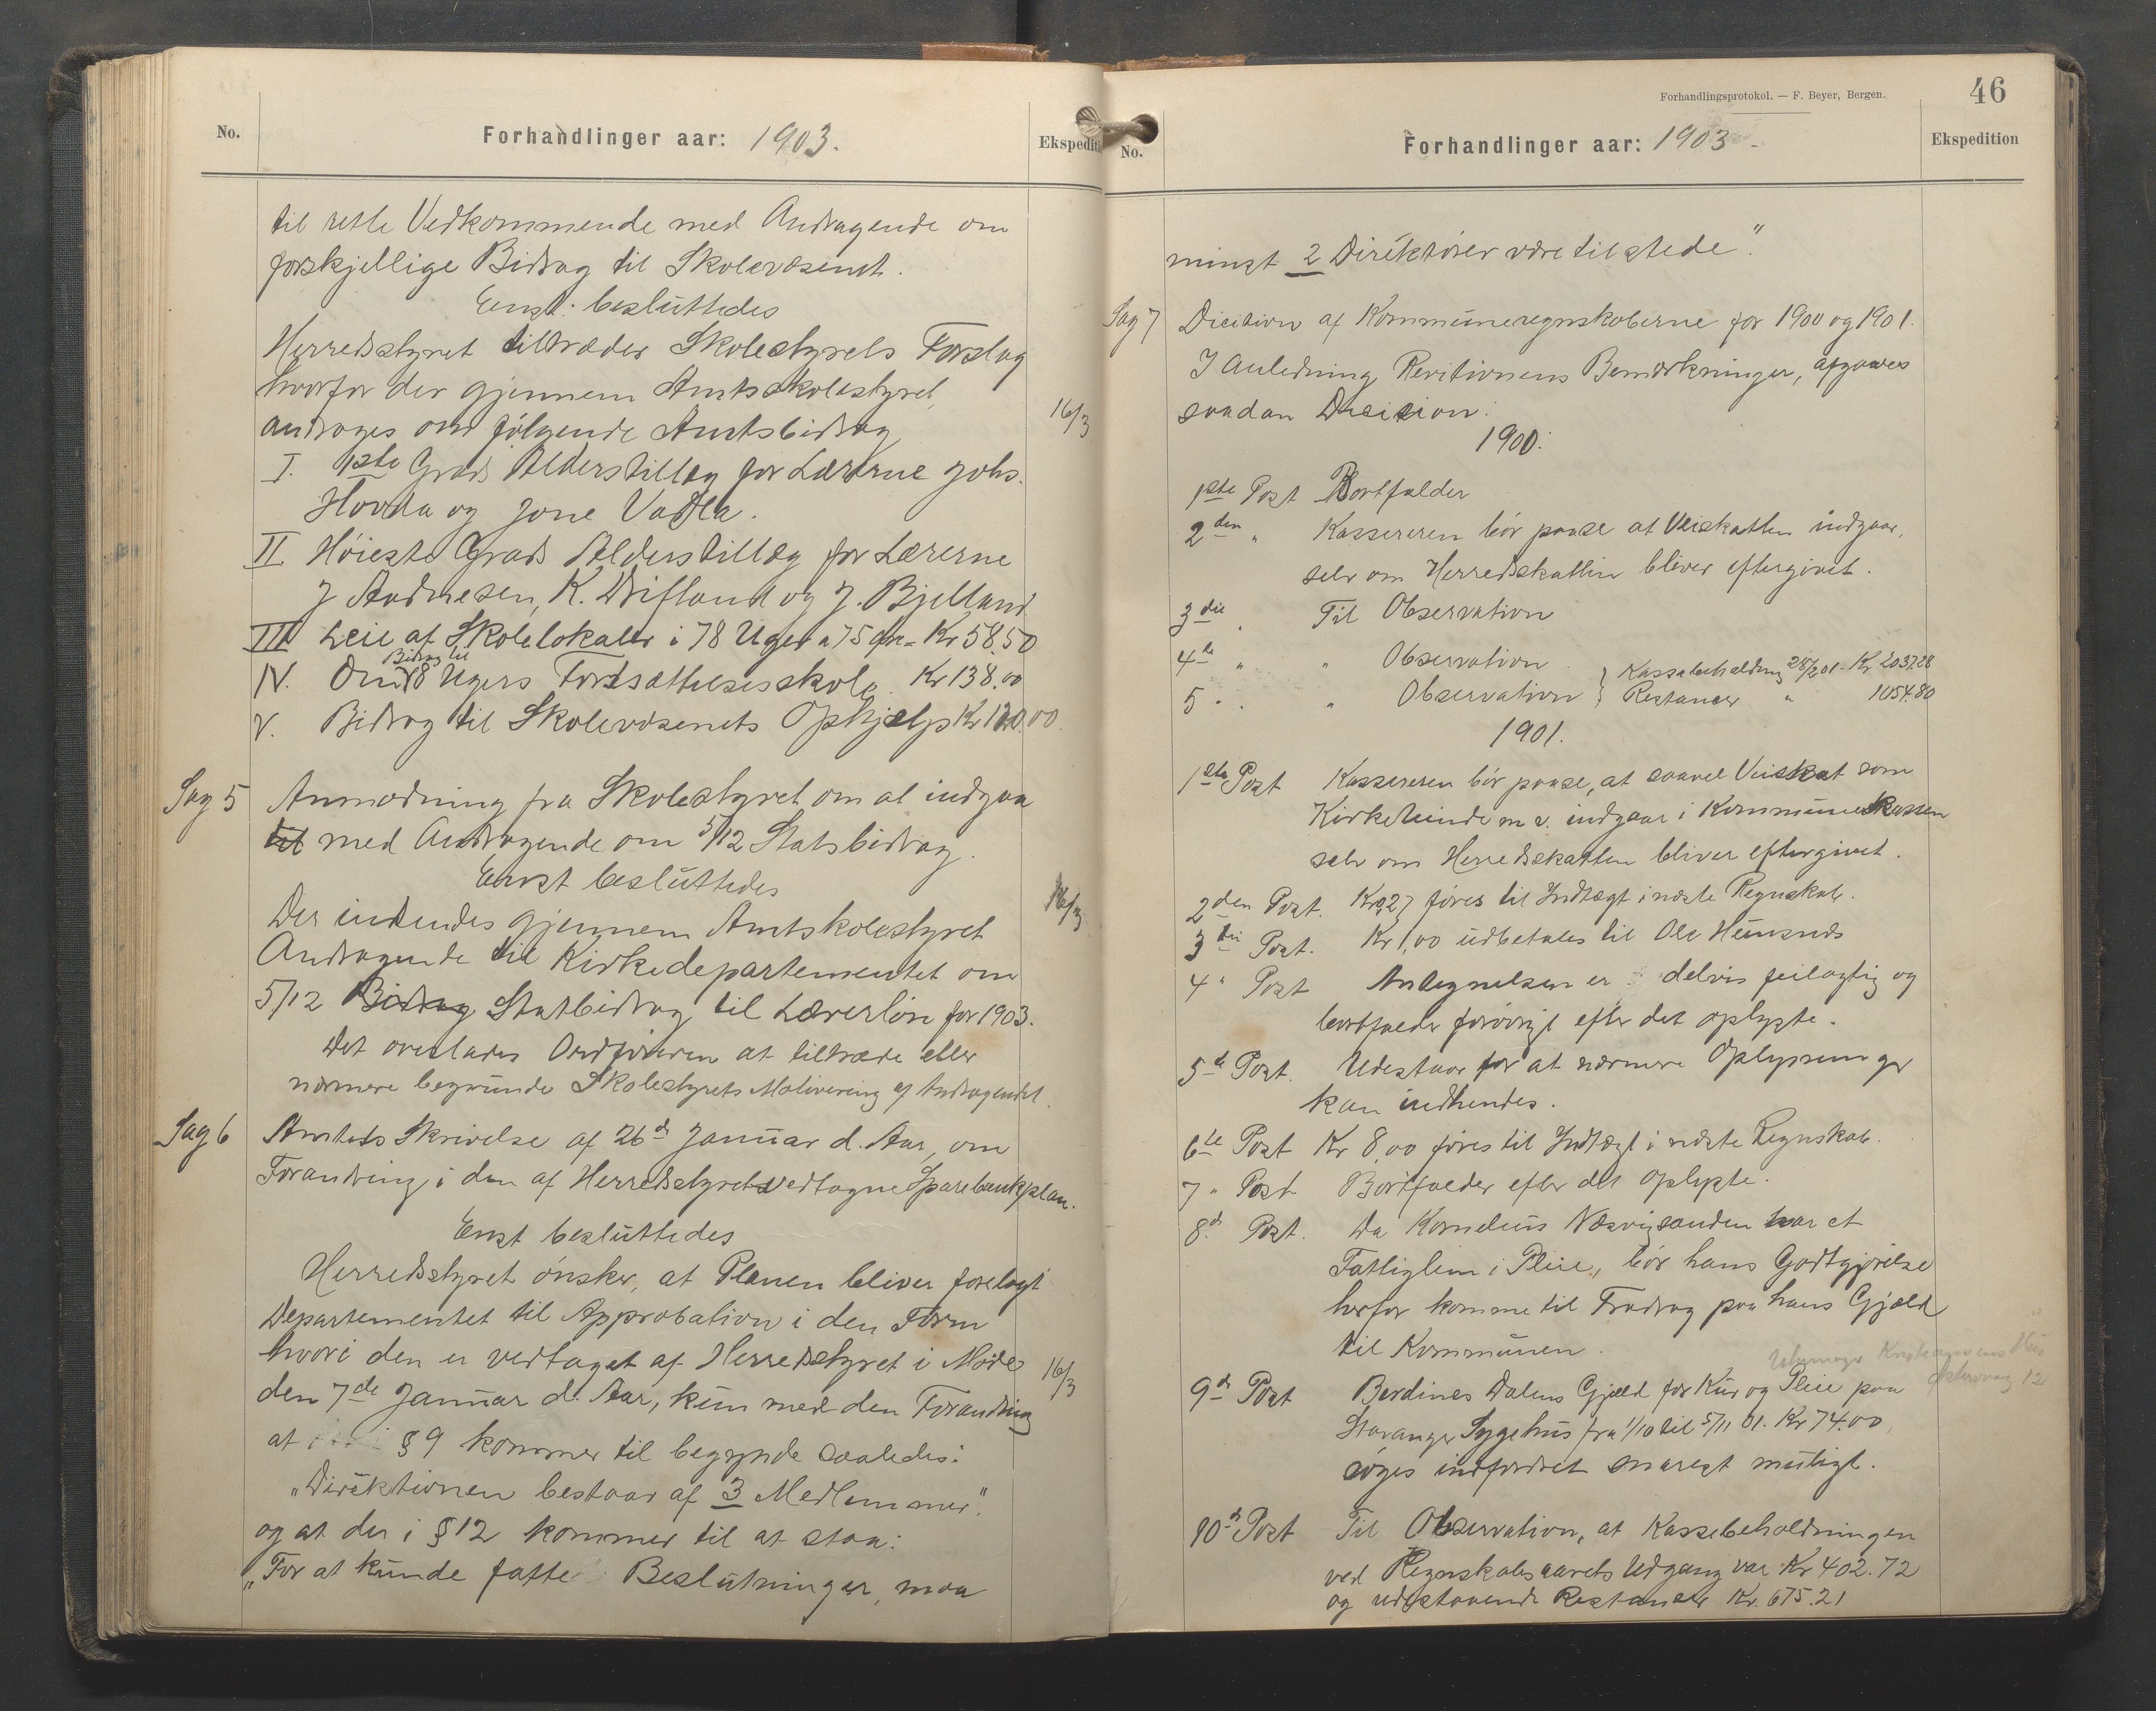 No.
Forhandlinger aar: 1903.
Ekspediti
til rette Vedkommende med Andragende om
forskjellige Bidrag til Skolevæsenet.
Enst. besluttedes
Herredsstyret tiltræder Skolestyrets Forslag
hvorfor der gjennem Amtsskolestyret,
andrages om følgende Amtsbidrag
16/3
I. 1ste Grads Alderstillæg for Lærerne Johs.
Hovda og Jone Vadla.
II Høieste Grads Alderstillæg for Lærerne
J Andresen, K. Drifland og J. Bjelland.
III Leie af Skolelokaler i 78 Uger a 75 Øre = Kr 58.50
Bidrag til
IV. Om 18 Ugers Fortsættelsesskole Kr 138.00
V. Bidrag til Skolevæsenets Ophjælp Kr 120.00
Sag 5 Anmodning fra Skolestyret om at indgaa
til med Andragende om 5/12 Statsbidrag.
Enst besluttedes
16/3
Der indsendes gjennem Amtskolestyret
Andragende til Kirkedepartementet om
5/12 Bidrag Statbidrag til Lærerløn for 1903.
Det overlades Ordføreren at tiltræde eller
nærmere begrunde Skolestyrets Motivering af Andragendet.
Sag 6 Amtets Skrivelse af 26de Januar d. Aar, om
Forandring i den af Herredsstyret vedtagne Sparebankplan.
Enst besluttedes
Herredsstyret ønsker, at Planen bliver forelagt
Departementet til Approbation i den Form
hvori den er vedtaget af Herredsstyret i Møde
16/3
den 7de Januar d. Aar, kun med den Forandring
at § 9 kommer til begynde saaledes:
"Direktionen bestaar af 3 Medlemmer".
og at der i § 12 kommer til at staa:
"For at kunde fatte Beslutninger, maa
Forhandlingsprotokol. — F. Beyer, Bergen.
46
No.
Forhandlinger aar: 1903 -
Ekspedition
mingt 2 Direktører være tilstede".
Sag 7 Dicition af Kommuneregnskaberne for 1900 og 1901.
I Anledning Revitionens Bemærkninger, afgaves
saadan Dicision:
1900:
1ste Post Bortfalder
2den " Kassereren bør paase at Veiskatten indgaar,
selv om Herredskatten bliver eftergivet.
3die " Til Observation
4de " " Observation } Kassabeholdning 28/2 01 - Kr 2037.28
5 " " " Observation } Restancer " 1054.80
1901.
1ste Post Kassereren bør paase, at saavel Veiskat som
Kirketiende m v. indgaar i Kommunekassen
selv om Herredskatten bliver eftergivet.
2den Post. Kr 0,27 føres til Indtægt i næste Regnskab.
3die Post. Kr 1,00 udbetales til Ole Heusnds
4" Post Antegnelsen er delvis feilagtig og
bortfalder forøvrigt efter det oplyste.
5te Post. Udestaar for at nærmere Oplysninger
kan indhendes.
6te Post Kr 8,00 føres til Indtægt i næste Regnskab.
7" Post Bortfalder efter det oplyste.
8de Post. Da Kornelius Næsvigsanden har et
Fattiglem i Pleie, bør hans Godtgjørelse
herfor komme til Fradrag paa hans Gjæld
til Kommunen.
Østervaag 12
9de Post Berdines Dalens Gjæld for Kur og Pleie paa
Stavanger Sygehus fra 1/10 til 5/11 01. Kr 74.00,
søges indfordret snarest muligt.
10de Post Til Observation, at Kassebeholdningen
ved Regnskabsaarets Udgang var Kr 402.72
og udestaaende Restancer Kr. 675.21